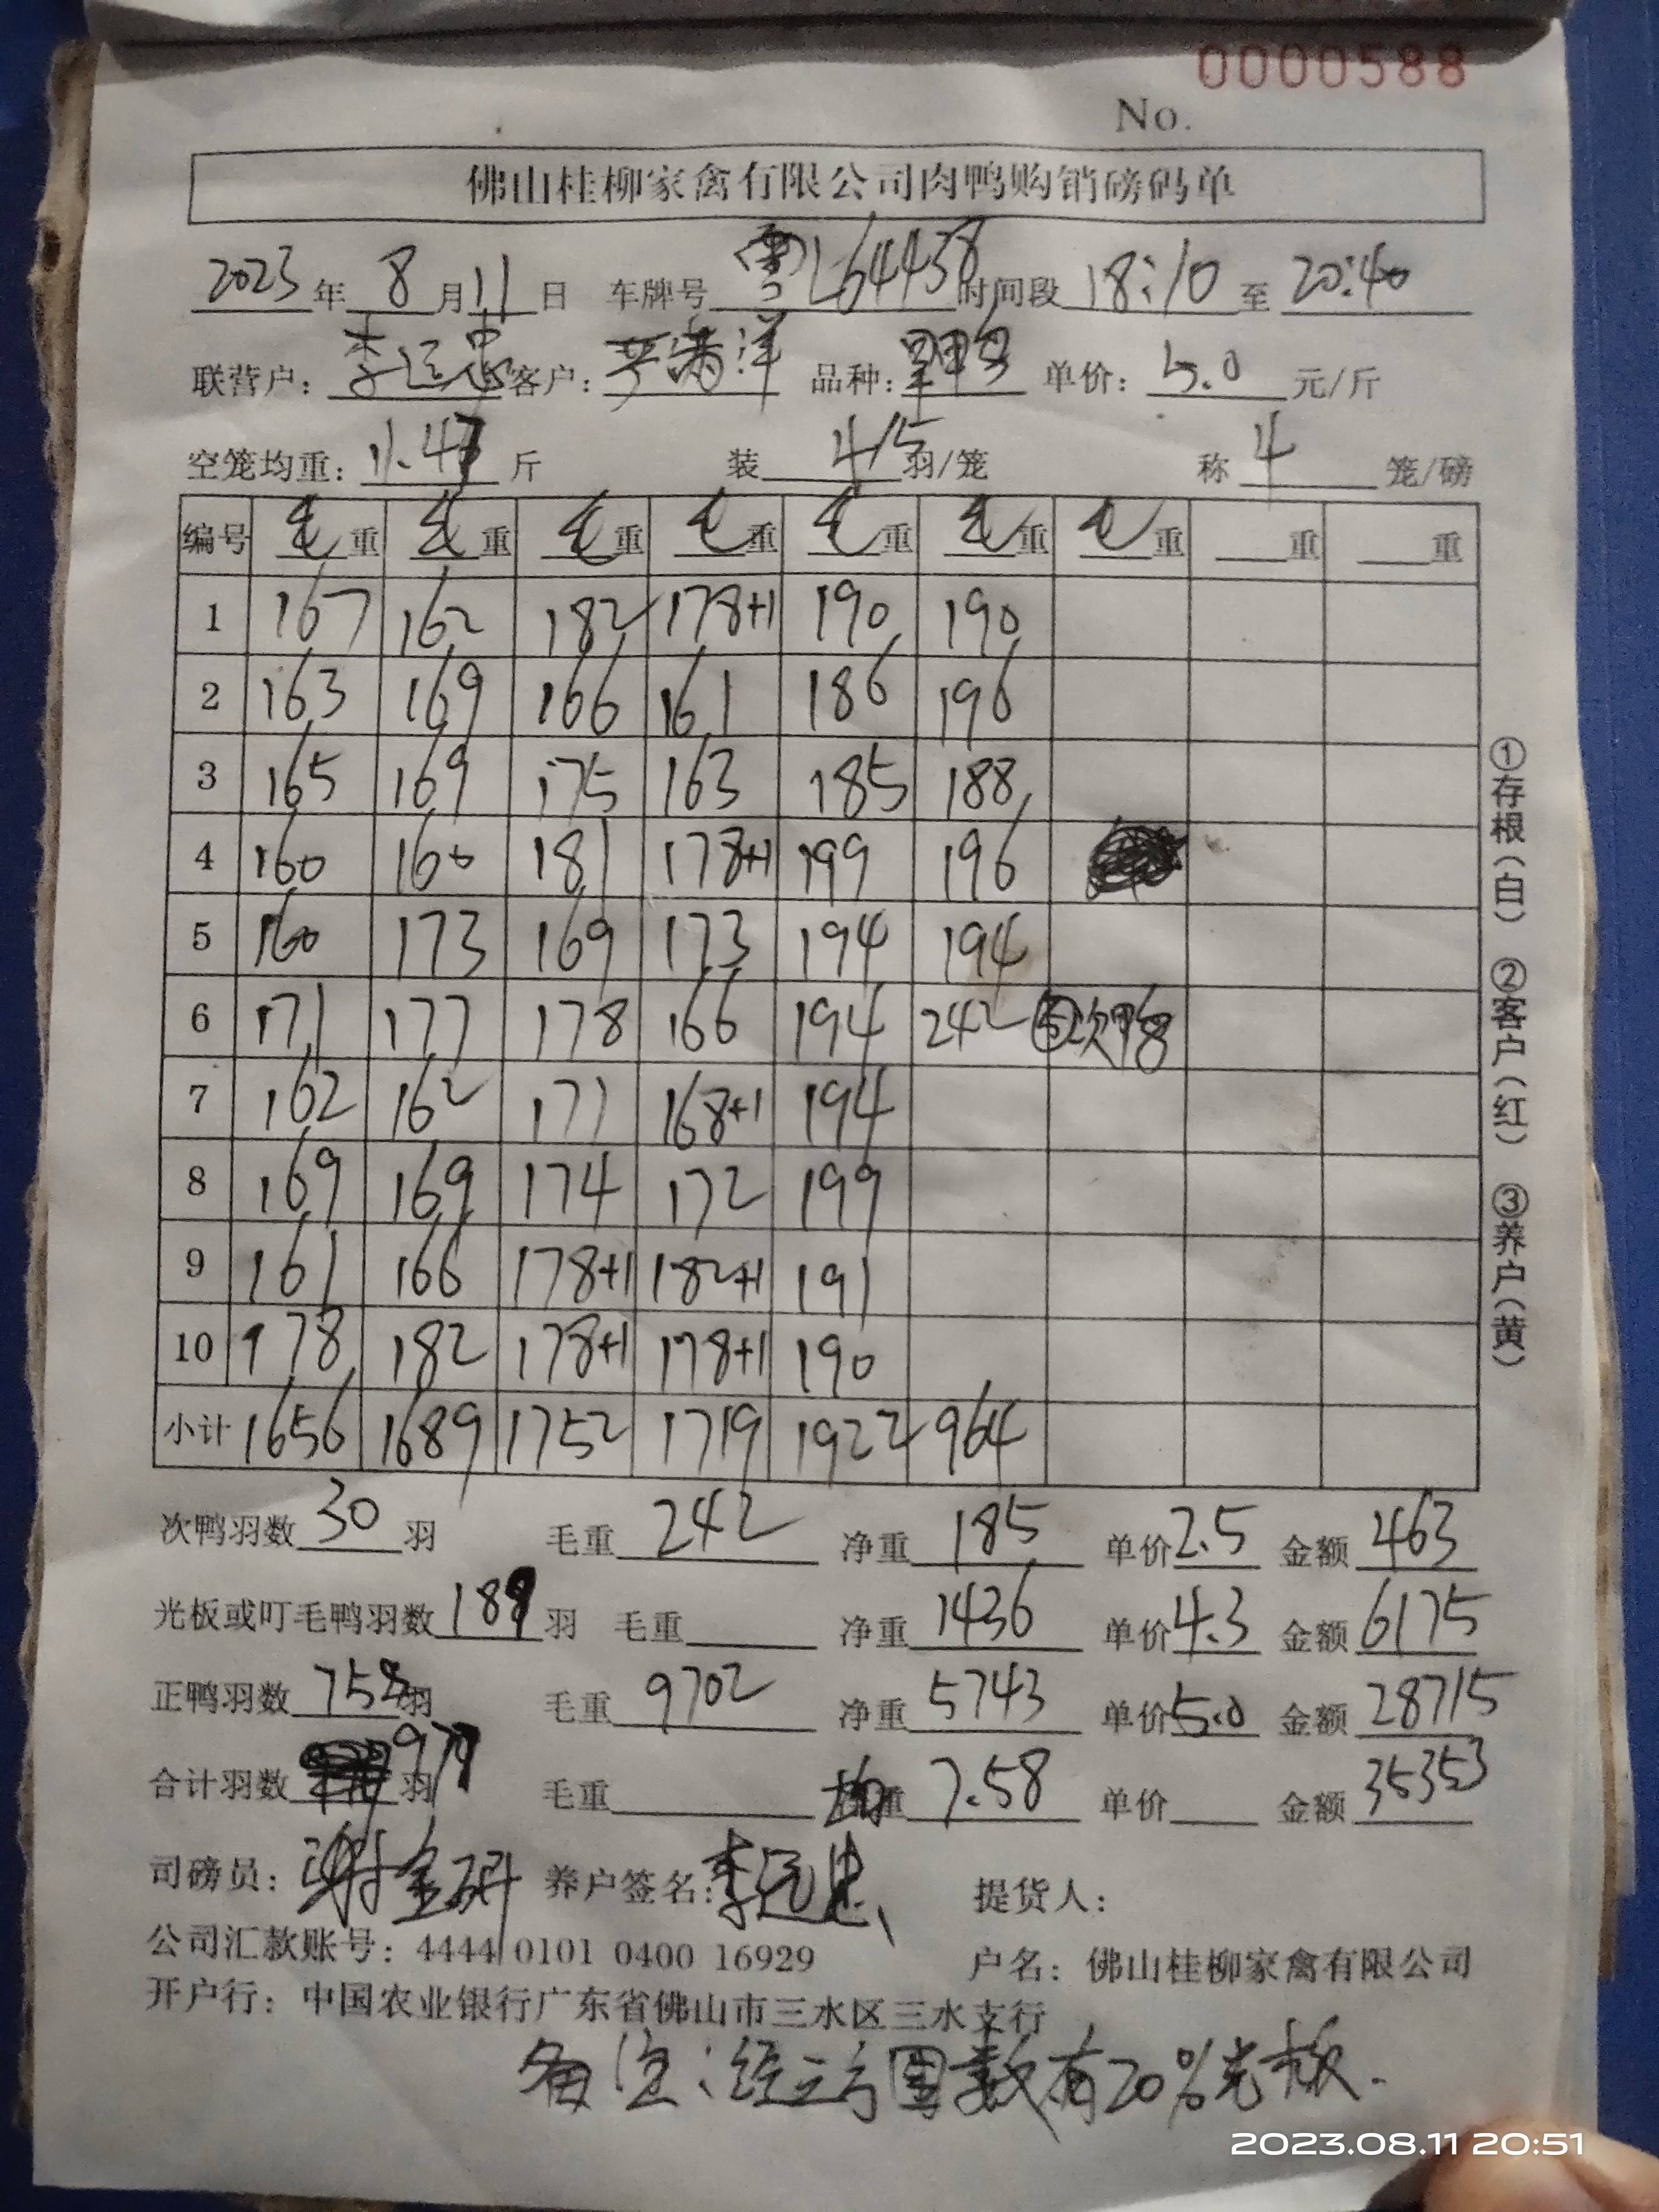 0000588
No.
佛山桂柳家禽有限公司肉鸭购销磅码单
2023年 8 月 11 日 车牌号 粤L64438 时间段 18:10 至 20:40
联营户: 李运忠 客户: 满洋 品种: 单价: 5.0 元/斤
空笼均重: 11.47 斤 装 4/5 羽/笼 称 4 笼/磅
编号 毛重 毛重 毛重 毛重 毛重 毛重 毛重 重 重
1 167 162 182 178+1 190 190
2 163 169 166 161 186 196
3 165 169 175 163 185 188
4 160 160 181 178+1 199 196
5 160 173 169 173 194 194
6 171 177 178 166 194 242 ⑤次鸭
7 162 162 171 168+1 194
8 169 169 174 172 199
9 161 166 178+1 182+1 191
10 178 182 178+1 178+1 190
小计 1656 1689 1752 1719 1922 964
次鸭羽数 30 羽 毛重 242 净重 185 单价 2.5 金额 463
光板或叮毛鸭羽数 189 羽 毛重 净重 1436 单价 4.3 金额 6175
正鸭羽数 758 羽 毛重 9702 净重 5743 单价 5.0 金额 28715
合计羽数 977 羽 毛重 均重 7.58 单价 金额 35353
司磅员: 谢金研 养户签名: 李运忠 提货人:
公司汇款账号: 4444 0101 0400 16929 户名: 佛山桂柳家禽有限公司
开户行: 中国农业银行广东省佛山市三水区三水支行
备注:经三方围数有20%光板.
①存根(白) ②客户(红) ③养户(黄)
2023.08.11 20:51